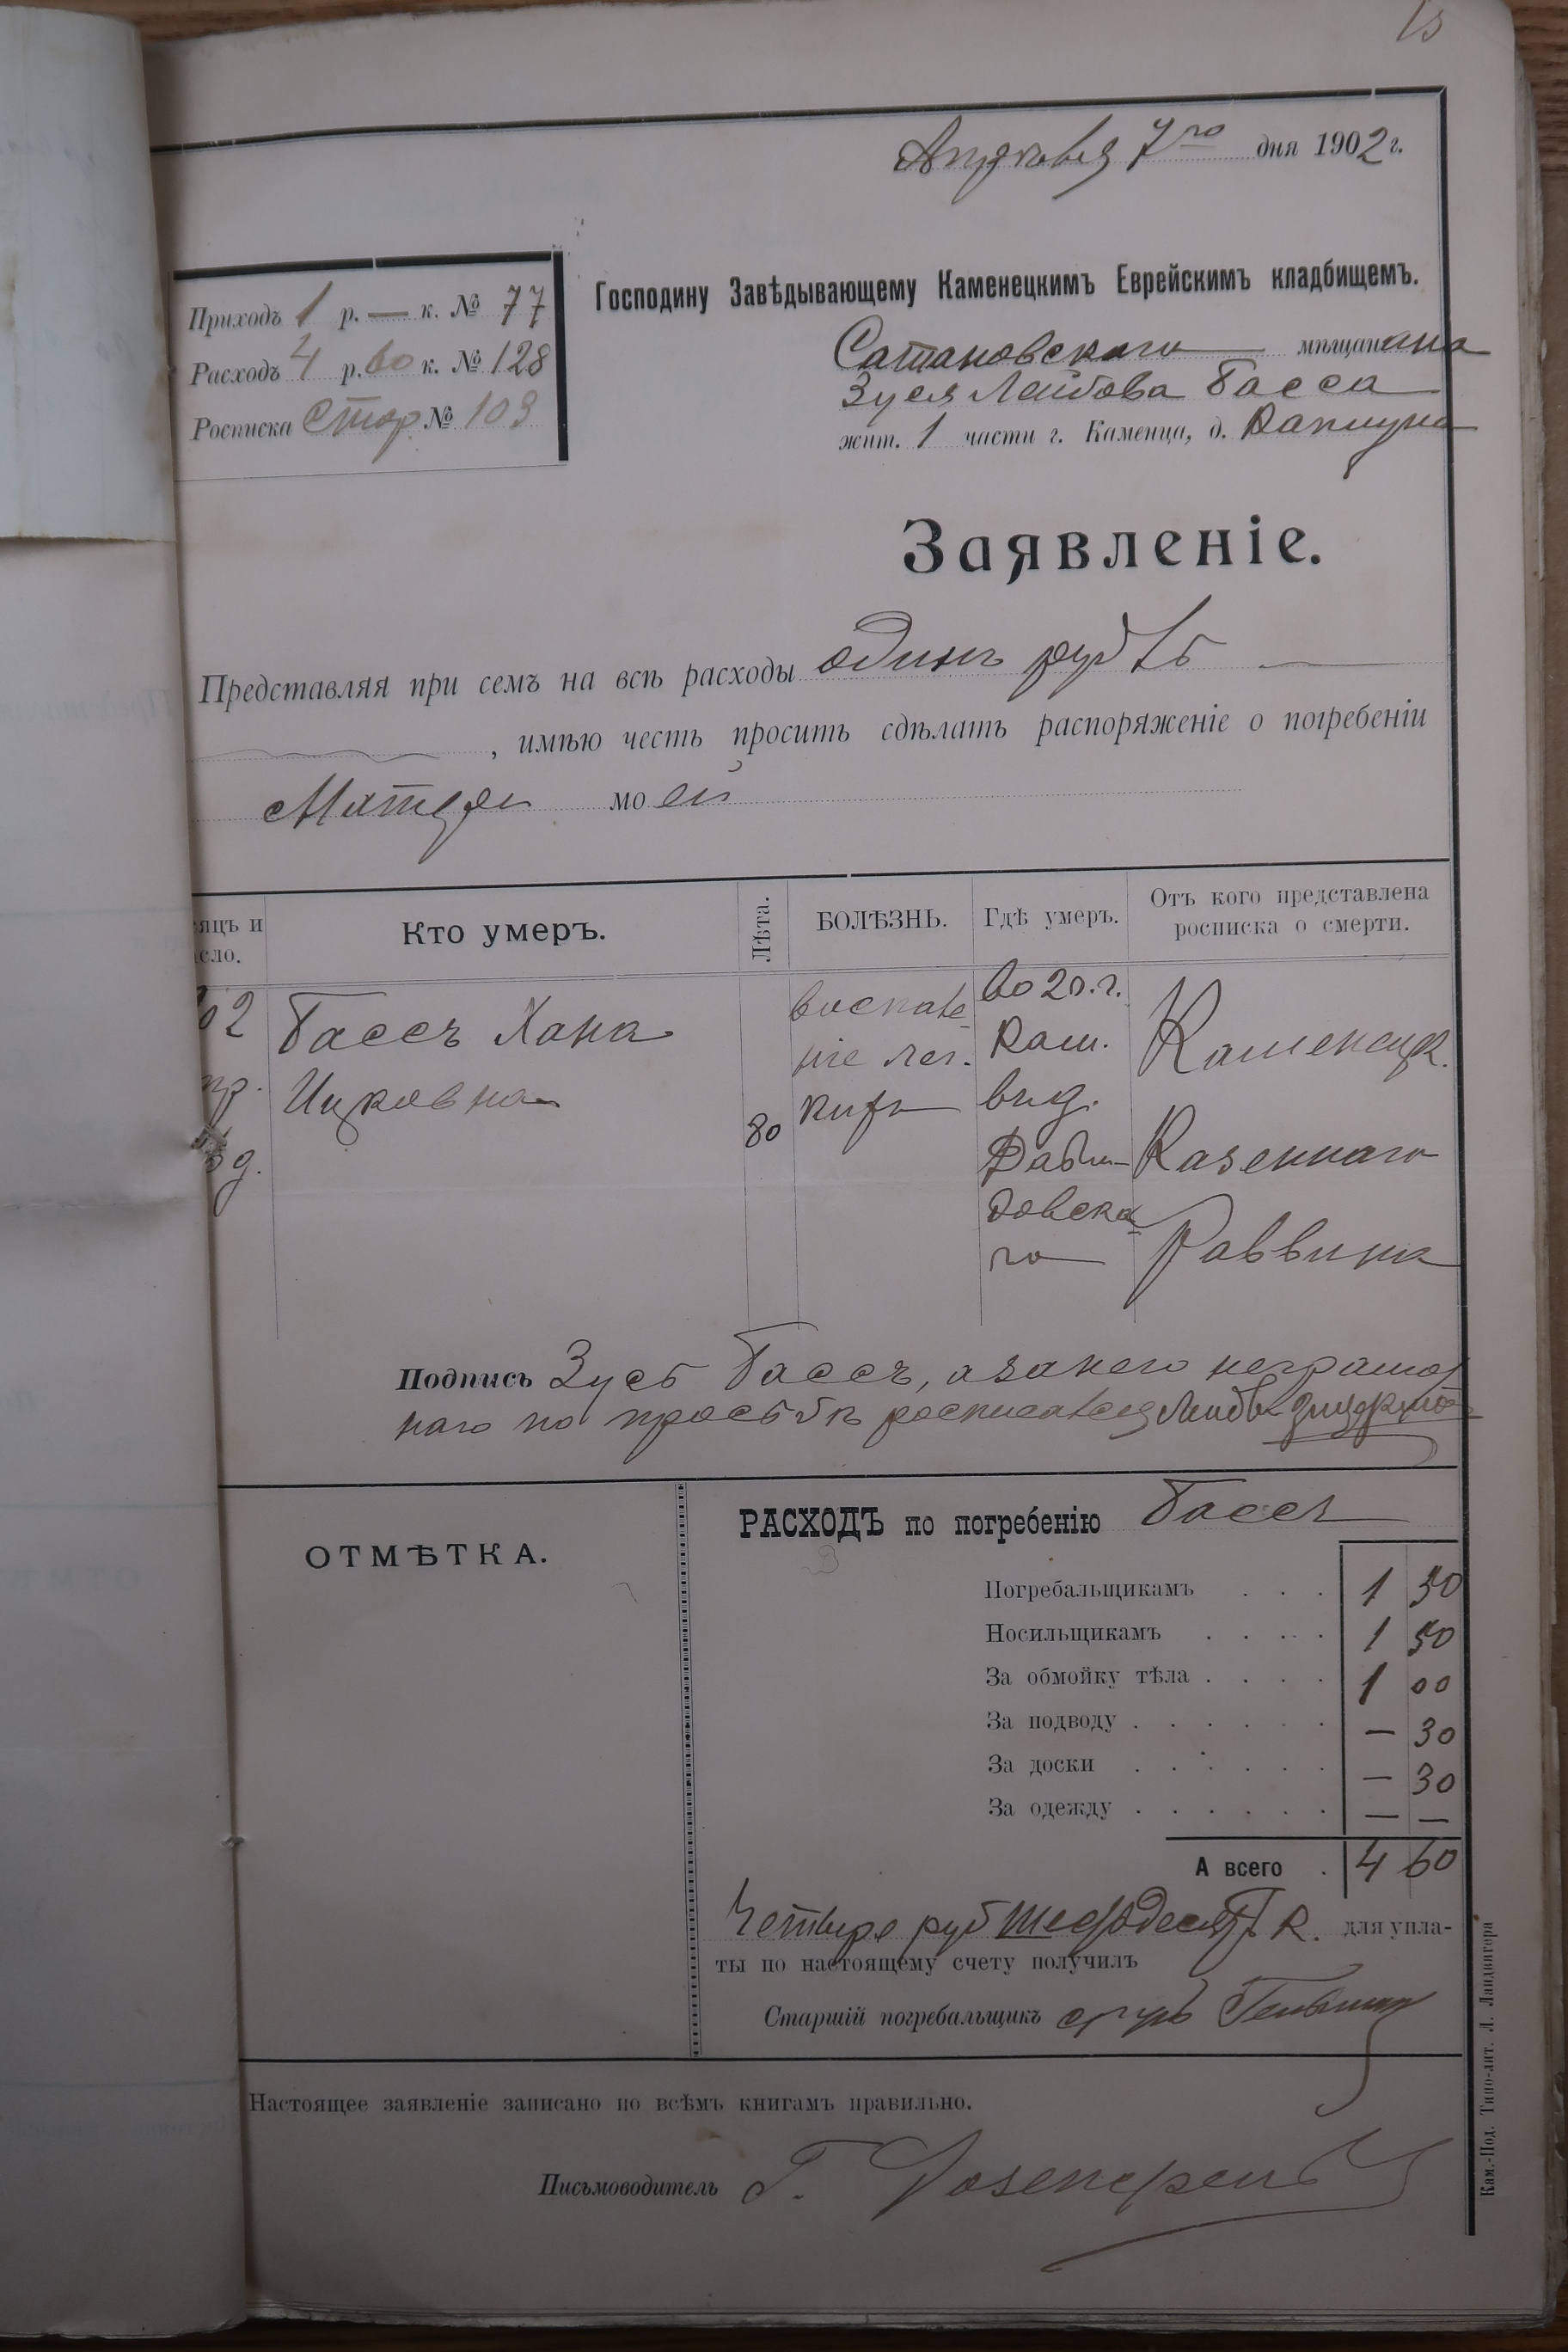 15
Апрѣля 7го дня 1902 г.
Приходъ 1 р. — к. № 77
Расходъ 4 р. 60 к. № 128
Росписка Стор. № 103
Господину Завѣдывающему Каменецкимъ Еврейскимъ кладбищемъ.
Сатановскаго мѣщанина
Зуся Лейбова Басса
жит. 1 части г. Каменца, д.
Заявленіе.
Представляя при семъ на всѣ расходы одинъ рубль
, имѣю честь просить сдѣлать распоряженіе о погребеніи
Матери моей
сяцъ и
сло.
Кто умеръ.
Лѣта.
БОЛѢЗНЬ.
Гдѣ умеръ.
Отъ кого представлена
росписка о смерти.
02
Бассъ Хана
Ицковна
80
воспале-
ніе лег-
кихъ
во 2 п. г.
Кам.
Каменецк.
Казеннаго
Раввина
Подпись Зусь Бассъ, а за него неграмот
наго по просьбѣ росписался Лейбъ
ОТМѢТКА.
РАСХОДЪ по погребенію Бассъ
Погребальщикамъ . . . 1 50
Носильщикамъ . . . . 1 50
За обмойку тѣла . . . . 1 00
За подводу . . . . . . — 30
За доски . . . . . . — 30
За одежду . . . . . . — —
А всего . 4 60
Четыре руб шестьдесятъ к. для упла-
ты по настоящему счету получилъ
Старшій погребальщикъ
Настоящее заявленіе записано по всѣмъ книгамъ правильно.
Письмоводитель Г.
Кам.-Под. Типо-лит. Л. Ландвигера